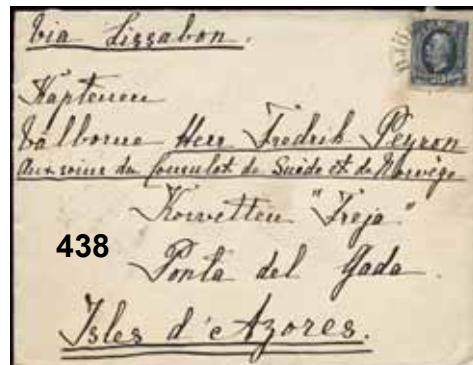 Via Lissabon.
Kaptenen
Välborne Herr Fredrik Peyron
Aux soins du Consulat de Suède et de Norvège
Korvetten "Freja"
438
Ponta del Gada.
Isles d'Azores.